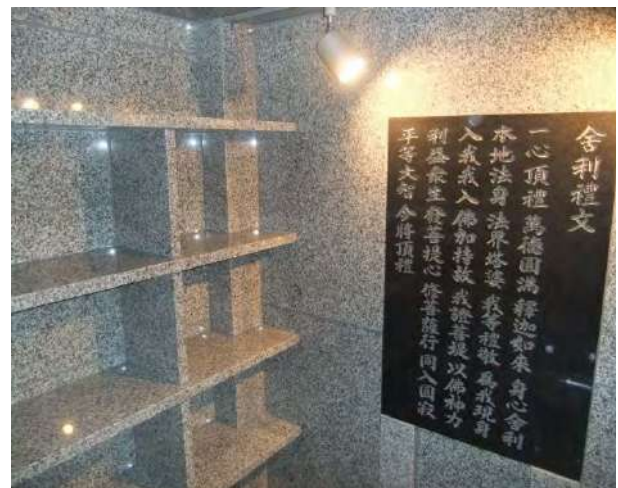 舍利禮文
一心頂禮 萬德圓滿 釋迦如來 身心舍利
本地法身 法界塔婆 我等禮敬 為我現身
入我我入 佛加持故 我證菩提 以佛神力
利益衆生 發菩提心 修菩薩行 同入圓寂
平等大智 今將頂禮